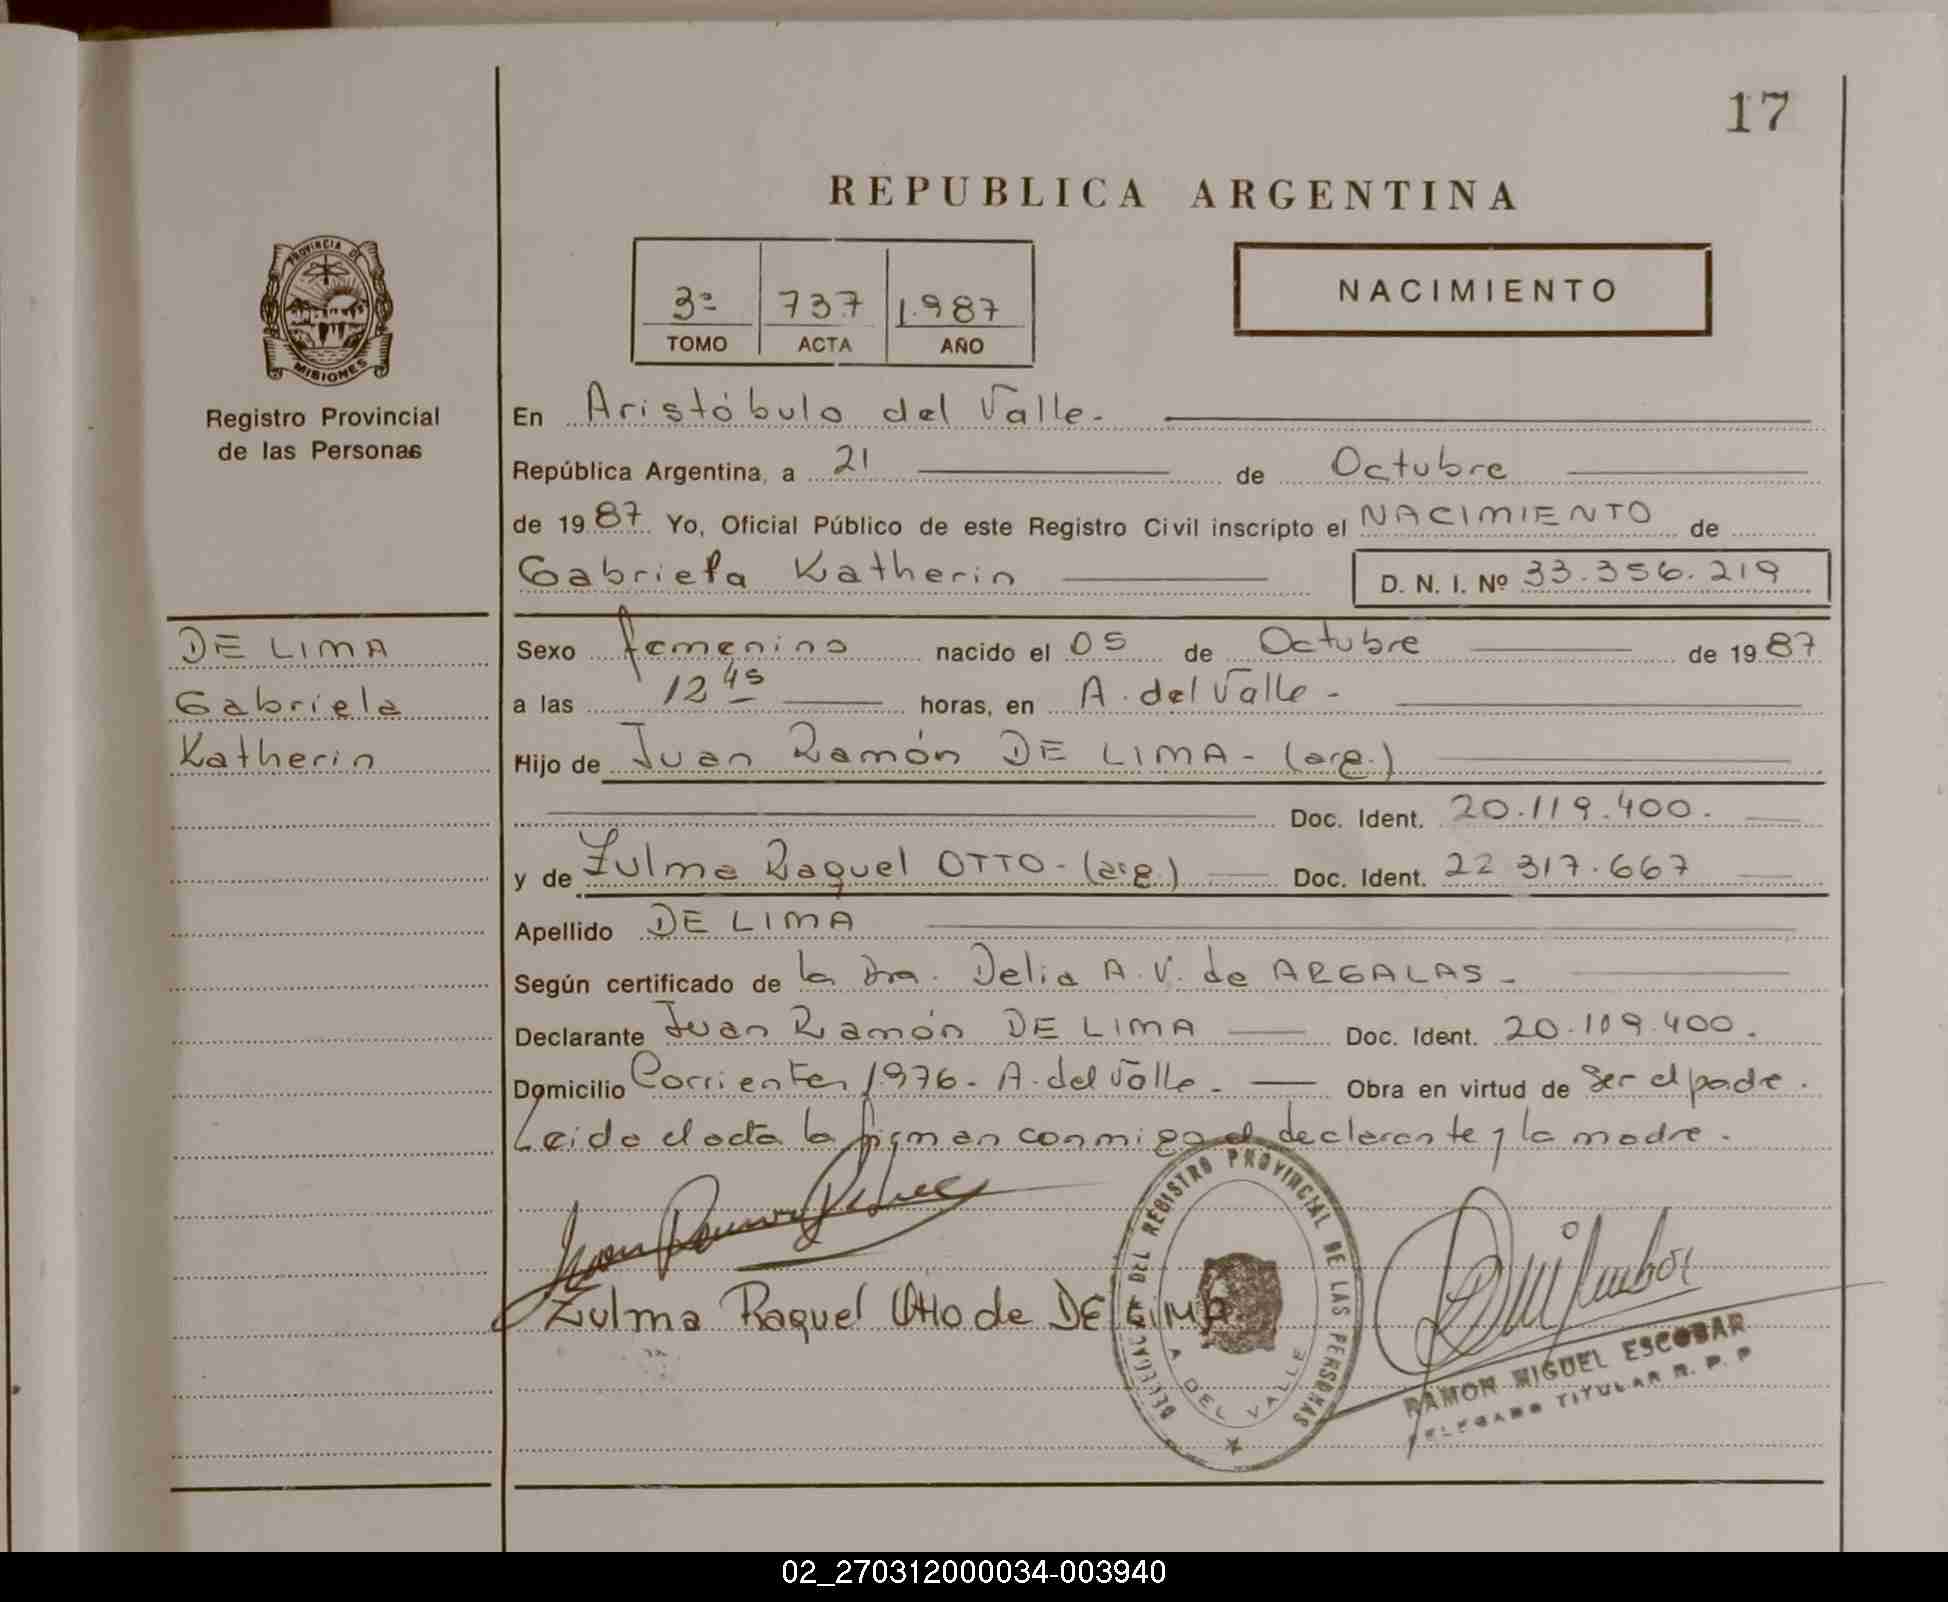 17
REPUBLICA ARGENTINA
PROVINCIA DE
MISIONES
Registro Provincial
de las Personas
3º 737 1.987
TOMO ACTA AÑO
NACIMIENTO
En Aristóbulo del Valle.-
República Argentina, a 21 de Octubre
de 1987 Yo, Oficial Público de este Registro Civil inscripto el NACIMIENTO de
Gabriela Katherin D. N. I. Nº 33.356.219
DE LIMA
Gabriela
Katherin
Sexo femenino nacido el 05 de Octubre de 1987
a las 12 45 horas, en A. del Valle -
Hijo de Juan Ramón DE LIMA - (arg.)
Doc. Ident. 20.119.400.
y de Zulma Raquel OTTO - (arg.) Doc. Ident. 22 317.667
Apellido DE LIMA
Según certificado de la Dra. Delia A. V. de ARGALAS -
Declarante Juan Ramón DE LIMA Doc. Ident. 20.109.400.
Domicilio Corrientes 1.976 - A. del Valle - Obra en virtud de Ser el padre.
Leida el acta la firman conmigo el declarante y la madre.
Juan Ramon
Zulma Raquel Otto de DE LIMA
DELEGACIA DEL REGISTRO PROVINCIAL DE LAS PERSONAS
A DEL VALLE
RAMON MIGUEL ESCOBAR
DELEGADO TITULAR R. P. P
02_270312000034-003940